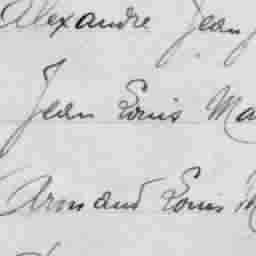 Alexandre Jean
Jean Louis Ma
Armand Louis M